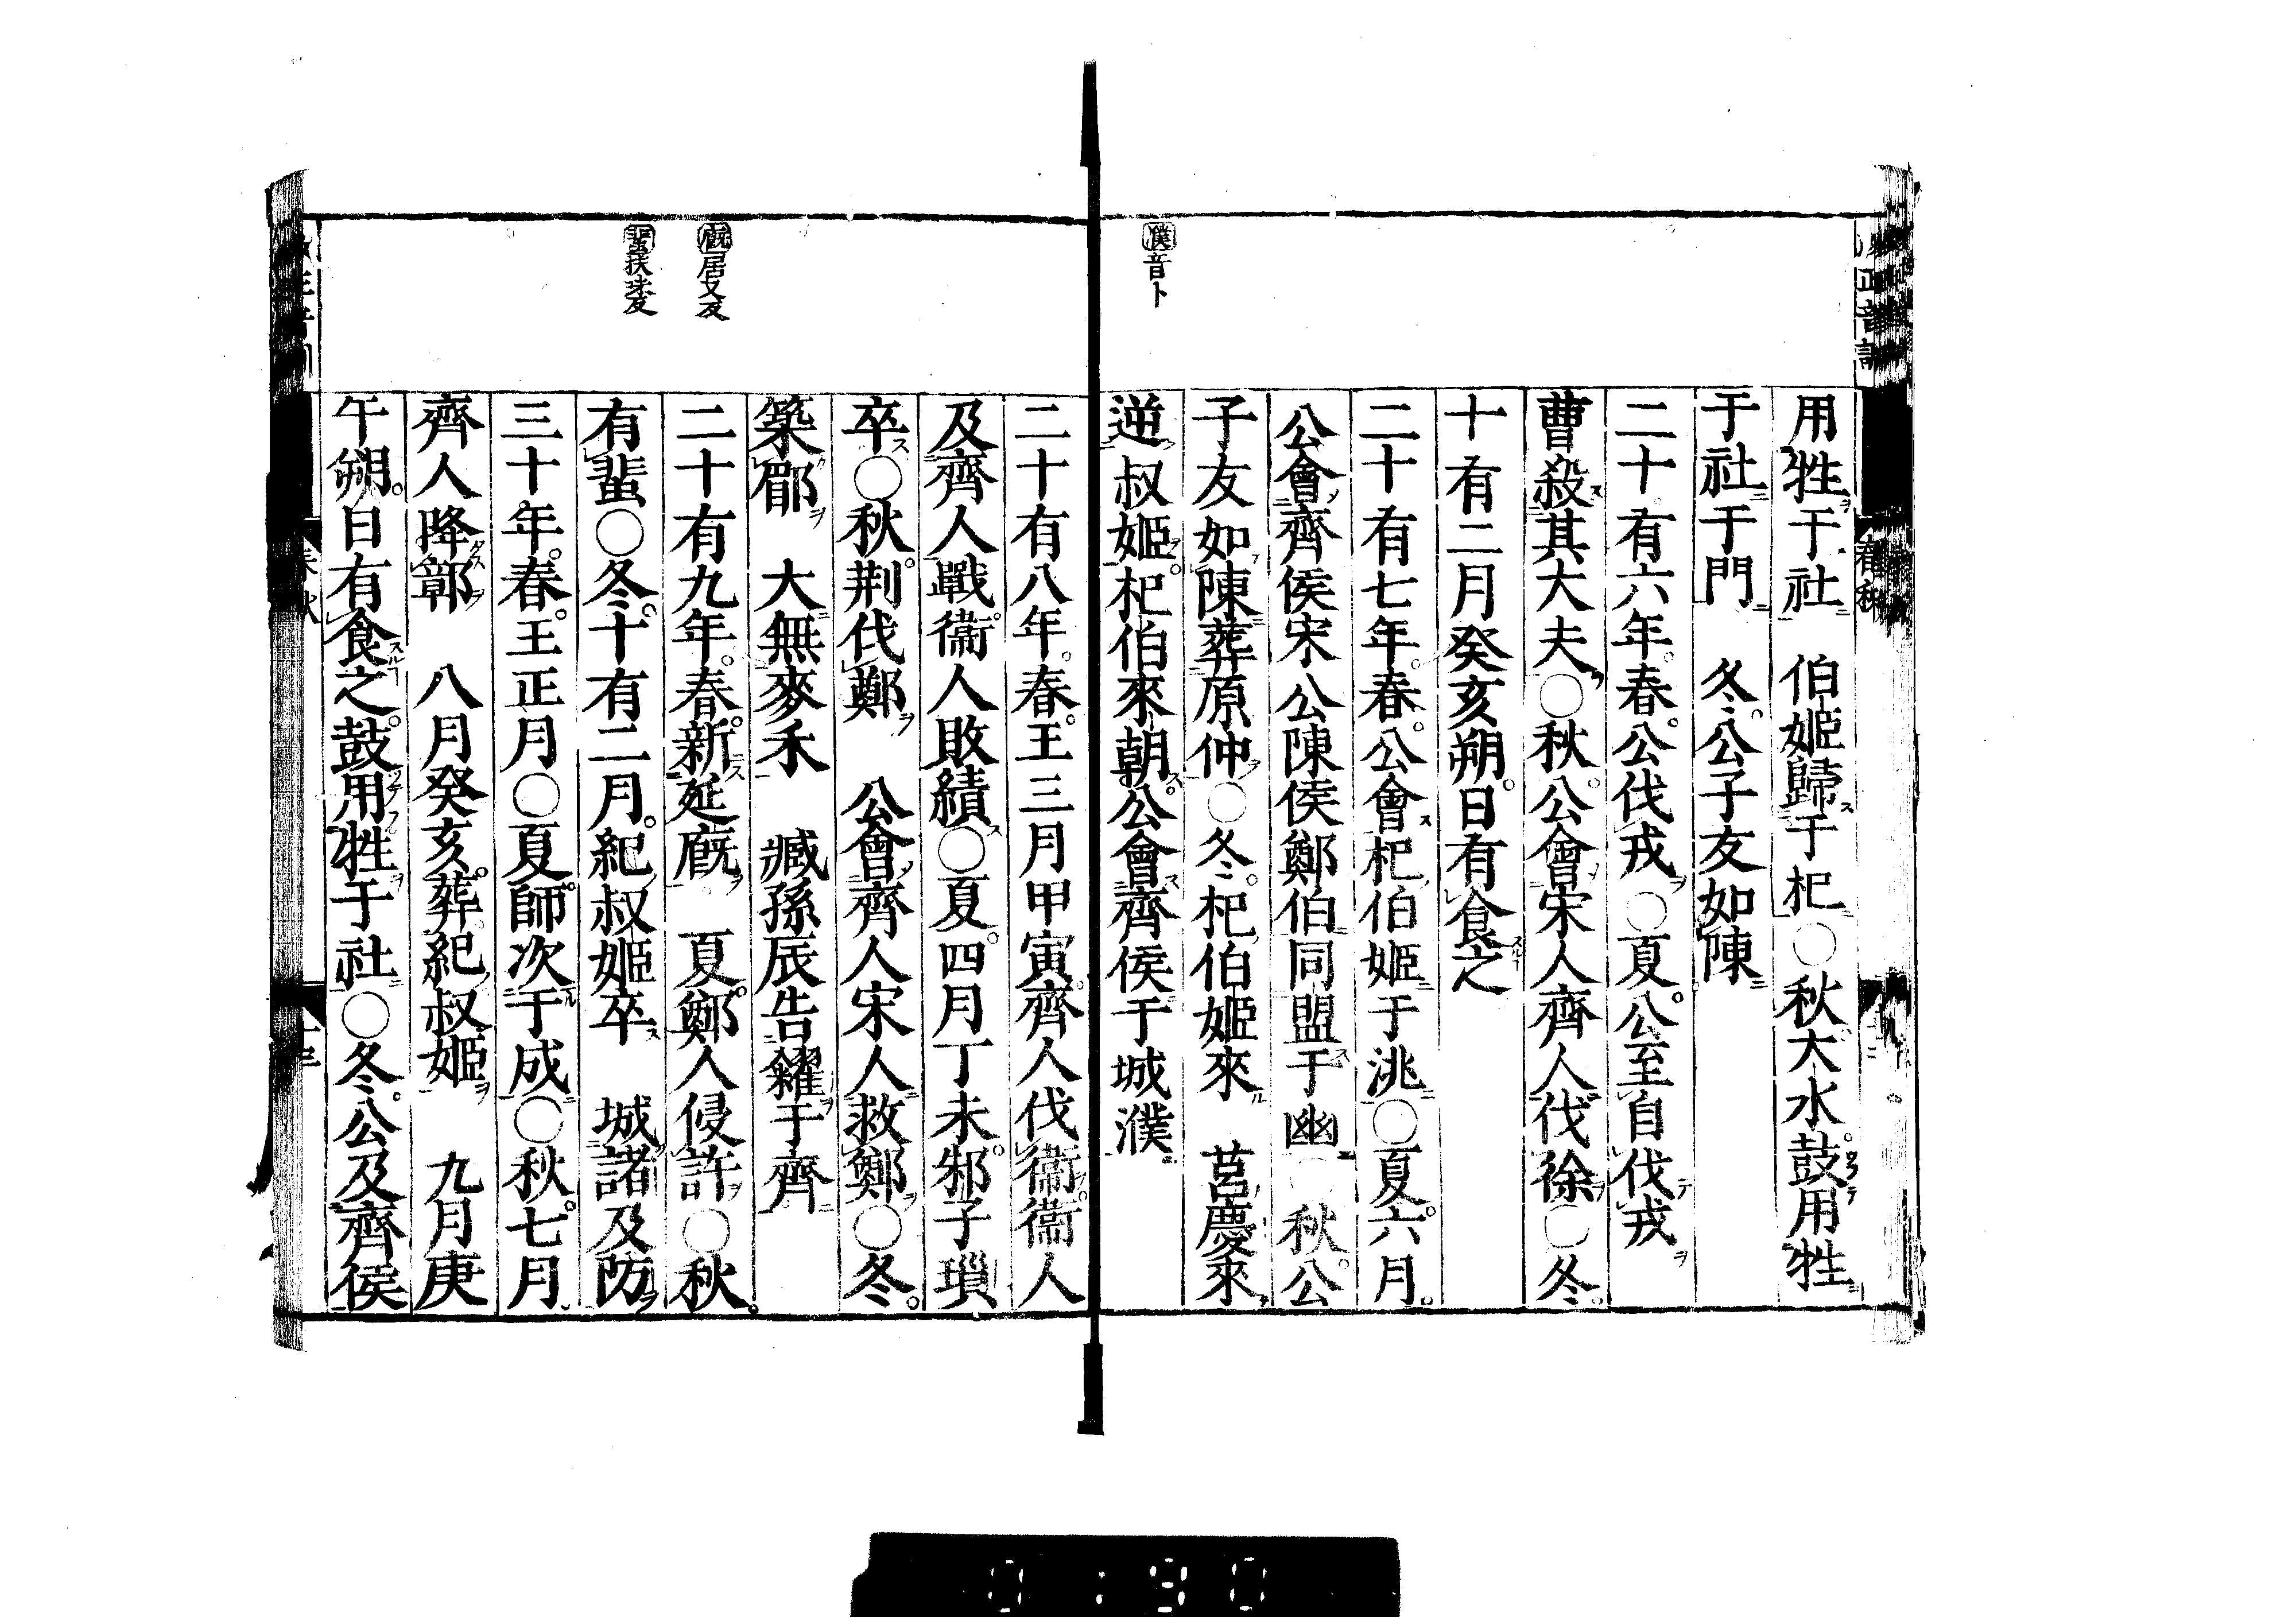 濮音卜
用牲于社　伯姬歸于杞○秋大水鼓用牲
于社于門　冬公子友如陳
二十有六年春公伐戎○夏公至自伐戎
曹殺其大夫○秋公會宋人齊人伐徐○冬
十有二月癸亥朔日有食之
二十有七年春公會杞伯姬于洮○夏六月
公會齊侯宋公陳侯鄭伯同盟于幽○秋公
子友如陳葬原仲○冬杞伯姬來　莒慶來
逆叔姬杞伯來朝公會齊侯于城濮
廐居又反
蜚扶味反
二十有八年春王三月甲寅齊人伐衞衞人
及齊人戰衞人敗績○夏四月丁未邾子瑣
卒○秋荆伐鄭　公會齊人宋人救鄭○冬
築郿　大無麥禾　臧孫辰告糴于齊
二十有九年春新延廐　夏鄭人侵許○秋
有蜚○冬十有二月紀叔姬卒　城諸及防
三十年春王正月○夏師次于成○秋七月
齊人降鄣　八月癸亥葬紀叔姬　九月庚
午朔日有食之鼓用牲于社○冬公及齊侯
春秋